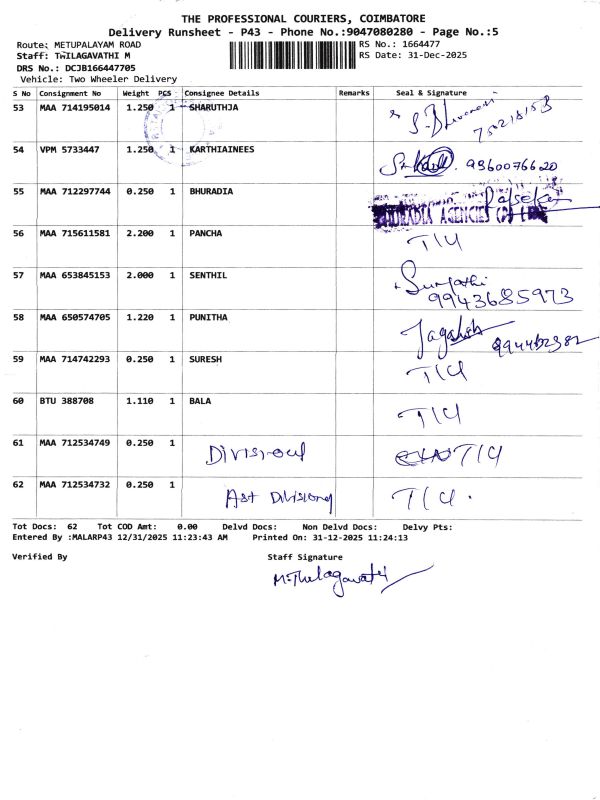 THE PROFESSIONAL COURIERS, COIMBATORE
Delivery Runsheet - P43 - Phone No.:9047080280 - Page No.:5
Route: METUPALAYAM ROAD
RS No.: 1664477
Staff: THILAGAVATHI M
RS Date: 31-Dec-2025
DRS No.: DCJB166447705
Vehicle: Two Wheeler Delivery
S No Consignment No Weight PCS Consignee Details Remarks Seal & Signature
53 MAA 714195014 1.250 1 SHARUTHJA
54 VPM 5733447 1.250 1 KARTHIAINEES 9360076620
55 MAA 712297744 0.250 1 BHURADIA BHURADIA AGENCIES (P) LTD
56 MAA 715611581 2.200 1 PANCHA T/4
57 MAA 653845153 2.000 1 SENTHIL Sumathi
9943685973
58 MAA 650574705 1.220 1 PUNITHA
59 MAA 714742293 0.250 1 SURESH T/4
60 BTU 388708 1.110 1 BALA T/4
61 MAA 712534749 0.250 1 Divisional T/4
62 MAA 712534732 0.250 1 Ast Divisiony T/4.
Tot Docs: 62 Tot COD Amt: 0.00 Delvd Docs: Non Delvd Docs: Delvy Pts:
Entered By :MALARP43 12/31/2025 11:23:43 AM Printed On: 31-12-2025 11:24:13
Verified By Staff Signature
M.Thilagavathi